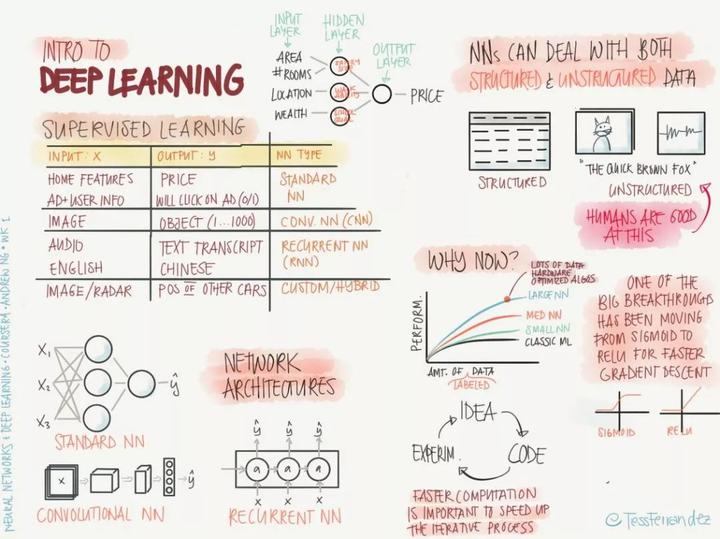 INTRO TO
DEEP LEARNING
INPUT LAYER
HIDDEN LAYER
OUTPUT LAYER
AREA
#ROOMS
LOCATION
WEALTH
PRICE
SUPERVISED LEARNING
INPUT: X OUTPUT: y NN TYPE
HOME FEATURES PRICE STANDARD
AD+USER INFO WILL CLICK ON AD (0/1) NN
IMAGE OBJECT (1...1000) CONV. NN (CNN)
AUDIO TEXT TRANSCRIPT RECURRENT NN
ENGLISH CHINESE (RNN)
IMAGE/RADAR POS OF OTHER CARS CUSTOM/HYBRID
NNs CAN DEAL WITH BOTH
STRUCTURED & UNSTRUCTURED DATA
STRUCTURED
"THE QUICK BROWN FOX"
UNSTRUCTURED
HUMANS ARE GOOD
AT THIS
WHY NOW?
LOTS OF DATA
HARDWARE
OPTIMIZED ALGOS
LARGE NN
MED NN
SMALL NN
CLASSIC ML
PERFORM.
AMT. OF DATA
LABELED
ONE OF THE
BIG BREAKTHROUGHS
HAS BEEN MOVING
FROM SIGMOID TO
RELU FOR FASTER
GRADIENT DESCENT
SIGMOID
RELU
X₁
X₂
X₃
ŷ
STANDARD NN
NETWORK
ARCHITECTURES
x ŷ
CONVOLUTIONAL NN
ŷ ŷ ŷ
a a a
x x x
RECURRENT NN
IDEA
CODE
EXPERIM.
FASTER COMPUTATION
IS IMPORTANT TO SPEED UP
THE ITERATIVE PROCESS
NEURAL NETWORKS & DEEP LEARNING • COURSERA • ANDREW NG • WK 1
@TessFerrandez